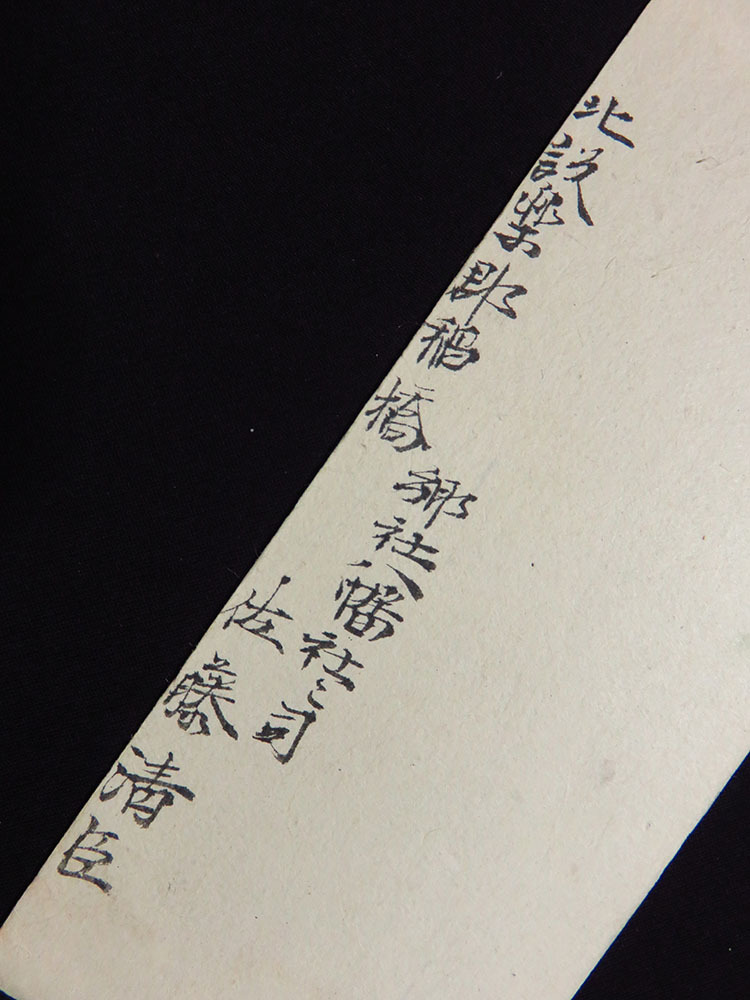 北設楽郡稲橋
郷社八幡社々司
佐藤清臣